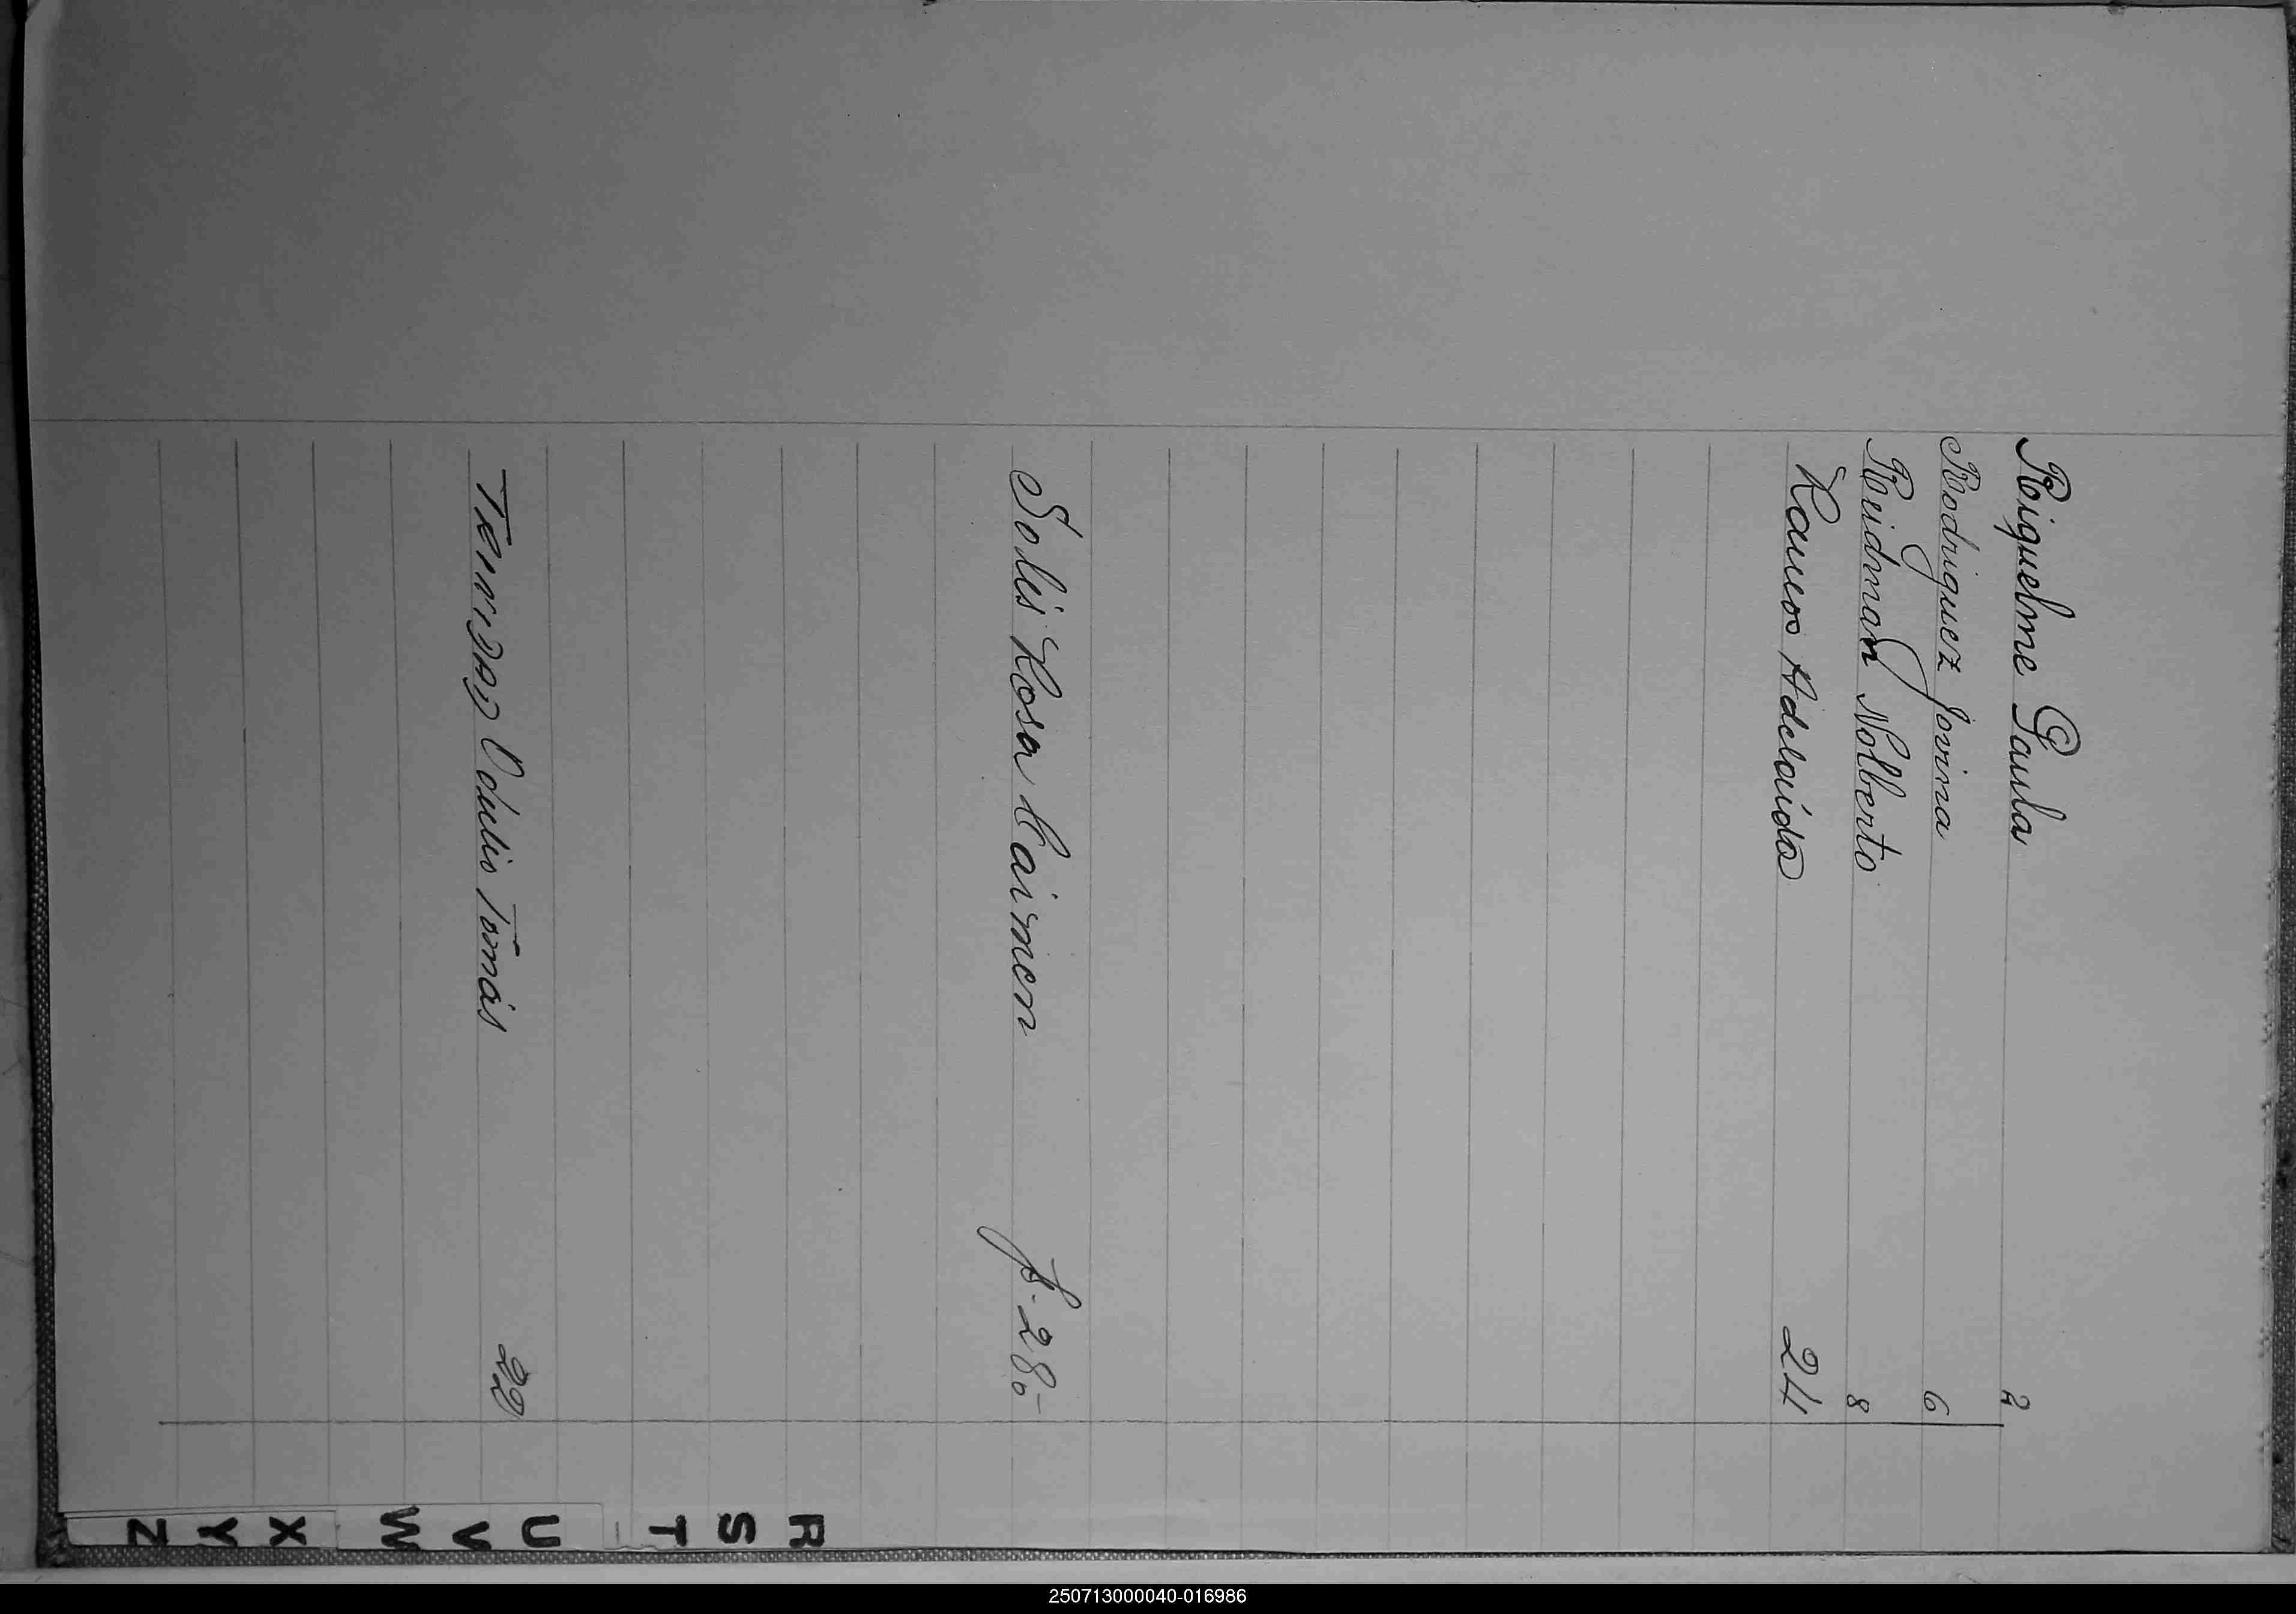 Riquelme Paula 2
Rodriguez Jovina 6
Reidman Nolberto 8
Ramos Adelaida 24
Solis Rosa Carmen f. 28
Odulio Tomás 22
R
S
T
U
V
W
X
Y
Z
250713000040-016986